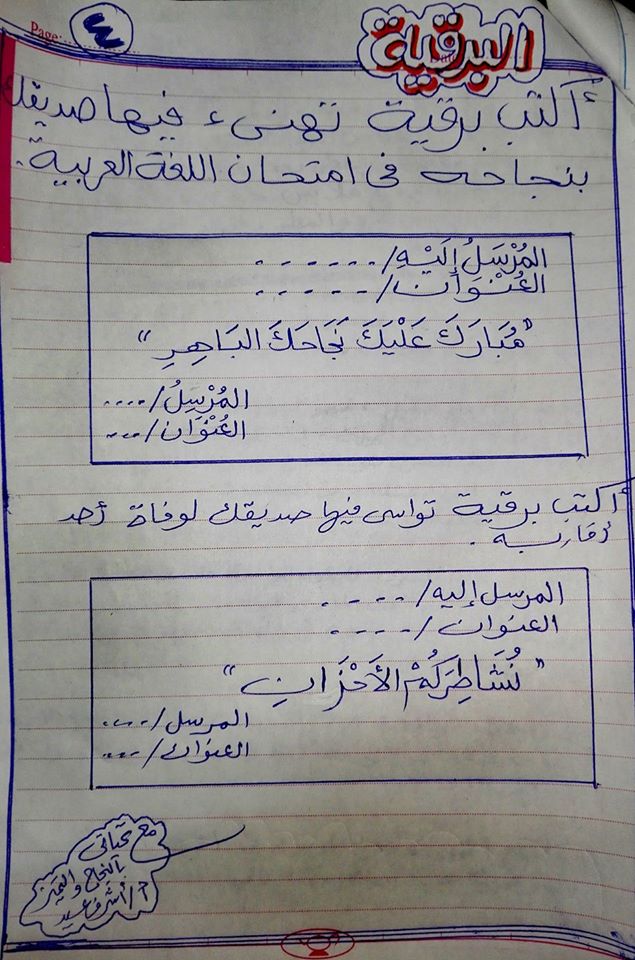 Page:
٣
البرقية
أكتب برقية تهنىء فيها صديقك
بنجاحه فى امتحان اللغة العربية.
المُرْسَلُ إِلَيْهِ/......
العُنْوَان/.....
"مُبَارَكَ عَلَيْكَ نَجَاحَكَ البَاهِرِ"
المُرْسِلُ/....
العُنْوَان/....
أكتب برقية تواسى فيها صديقك لوفاة أحد
أقاربه.
المرسل إليه/....
العنوان/....
"نُشَاطِرَكُمْ الأَحْزَانِ"
المرسل/....
العنوان/....
مع تحياتى
بالنجاح والتميز
أ/أشرف عيد